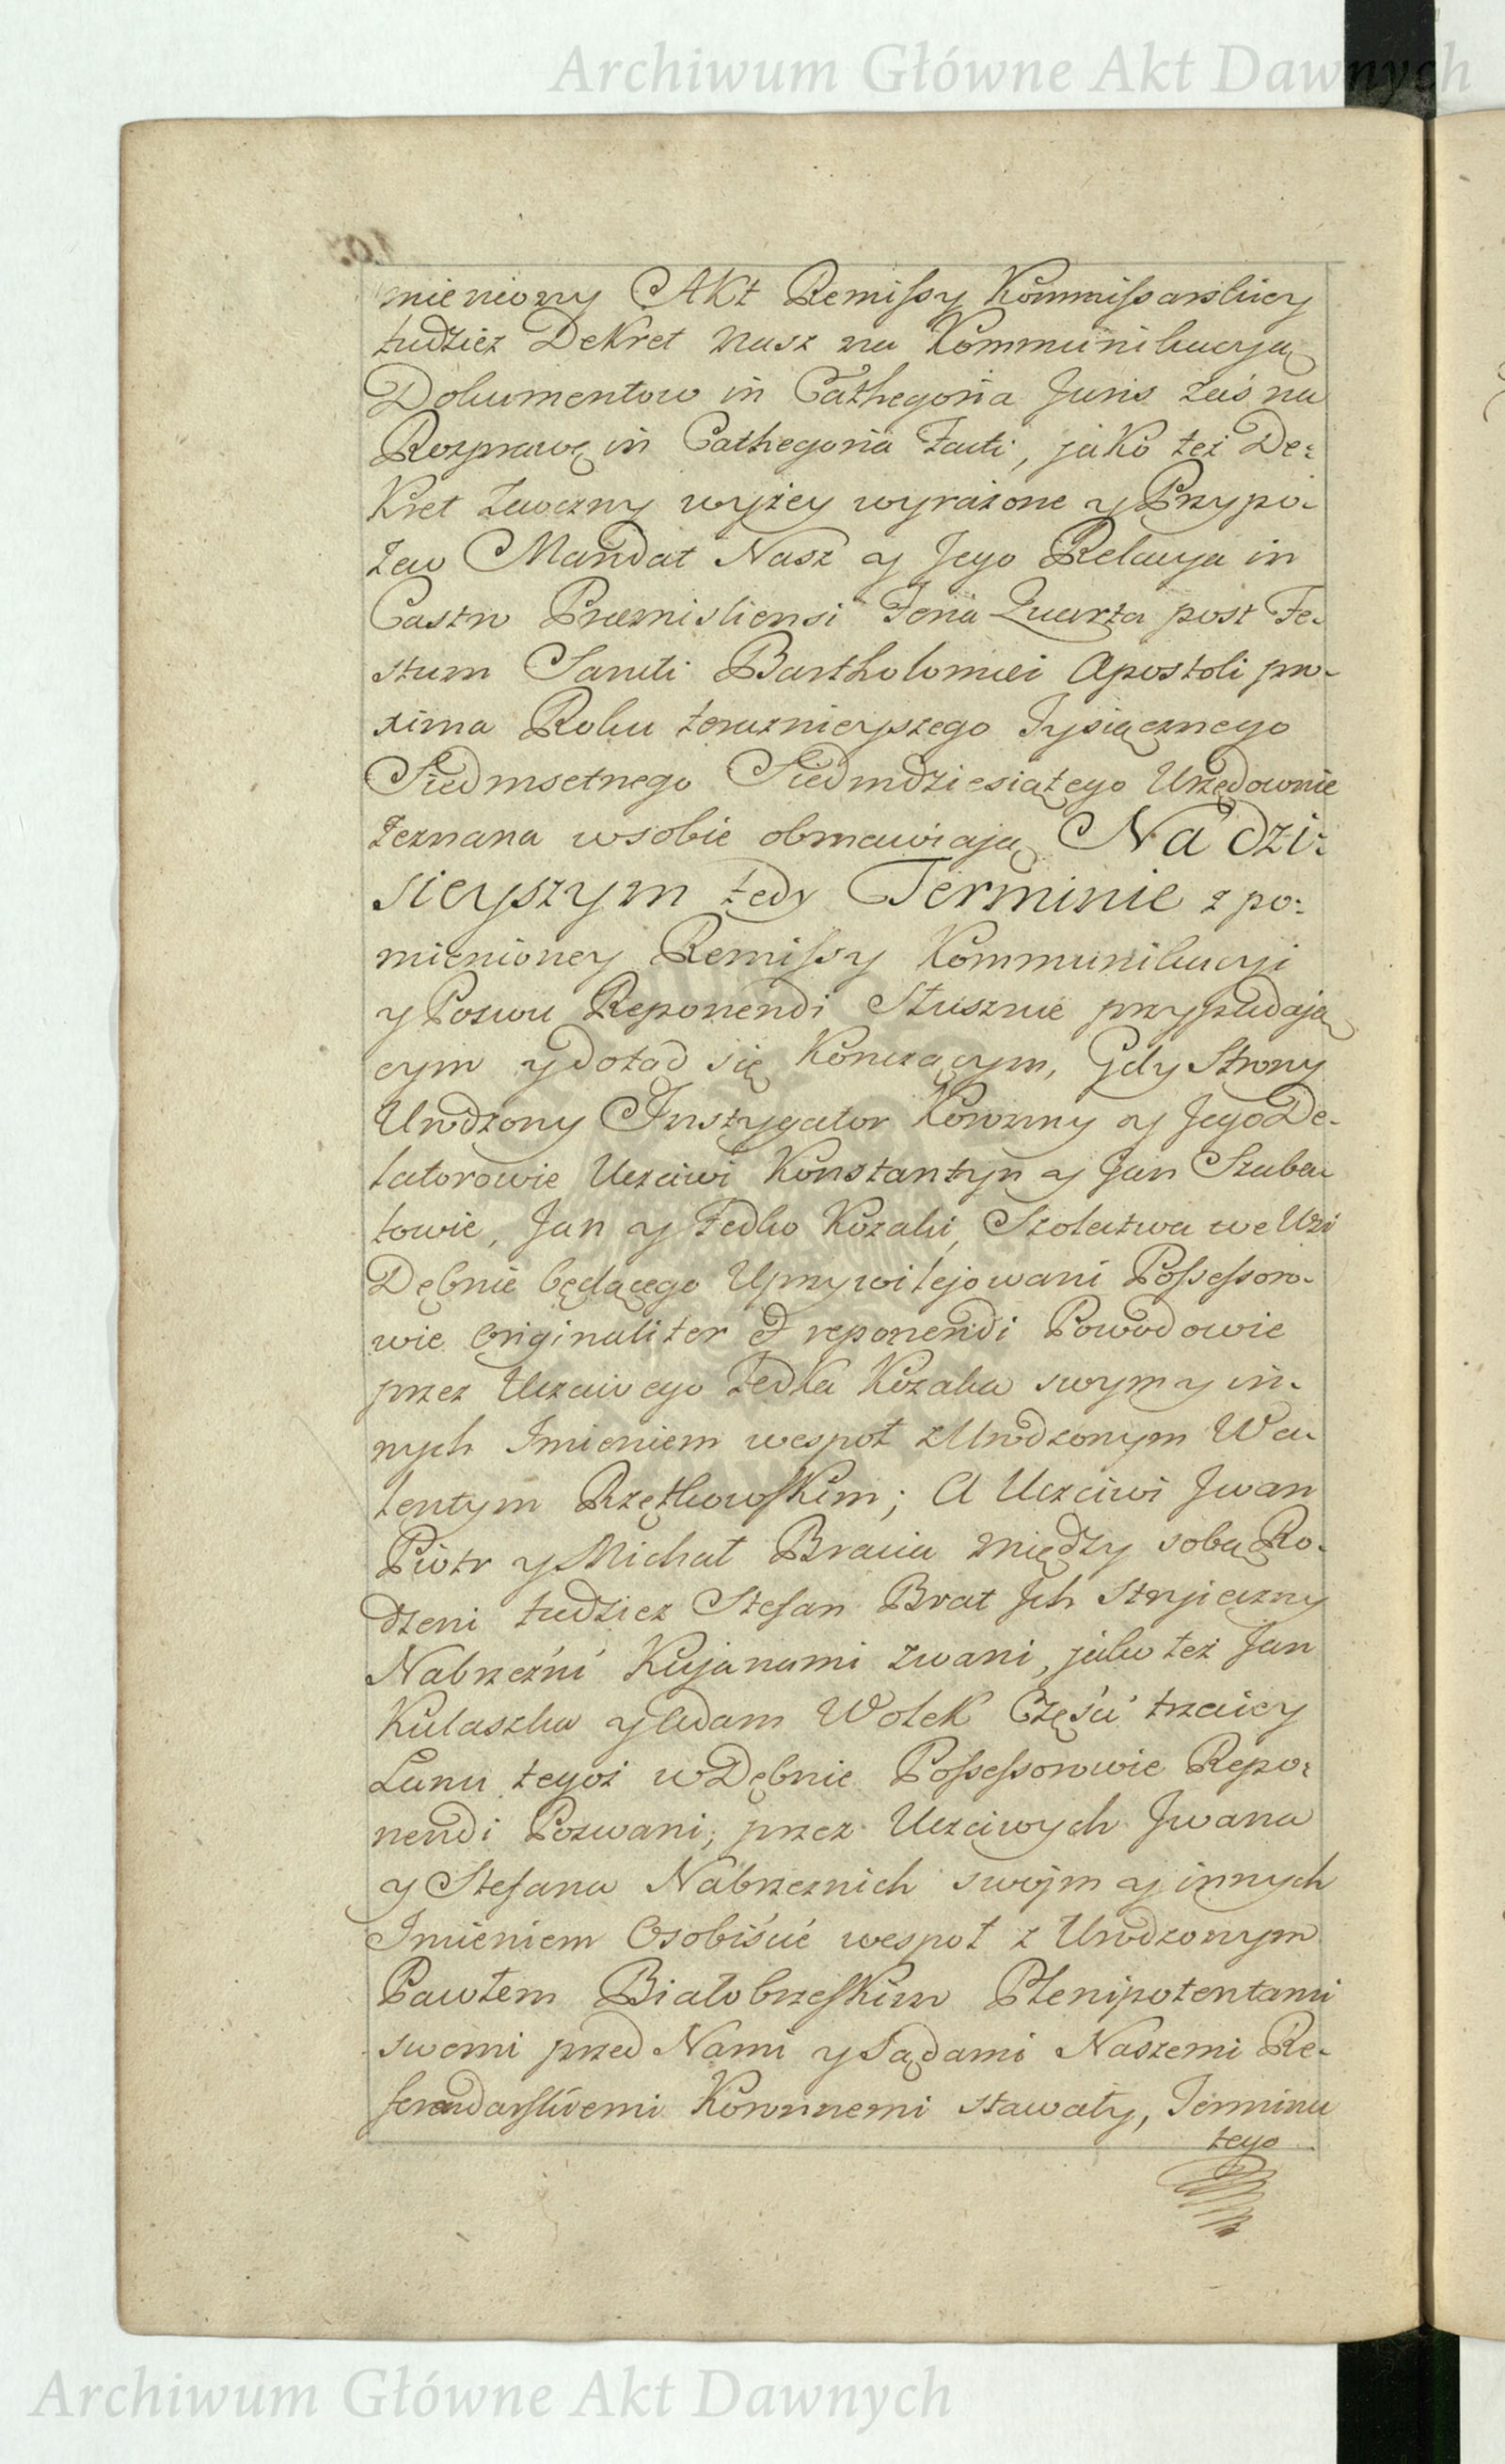 Archiwum Główne Akt Dawnych
mieniony Akt Remissy Kommissarskiey
tudziez Dekret nasz na Kommunikacyą
Dokumentow in Cathegoria Juris zaś na
Rozprawę in Cathegoria Facti, jako też De:
kret Zaoczny wyżey wyrażone y Przypo-
zew Mandat Nasz y Jego Relacya in
Castro Præmisliensi Feria Quarta post Fe-
stum Sancti Bartholomæi Apostoli pro-
xima Roku teraznieyszego Tysiącznego
Siedmsetnego Siedmdziesiątego Urzędownie
zeznana w sobie obmawiaią Na dzi:
sieyszym tedy Terminie z po:
mienioney Remissy Kommunikacyi
y Pozwu Reponendi Słusznie przypadają
cym y dotąd się konczącym, Gdy Strony
Urodzony Instygator Koronny y Jego De-
latorowie Uczciwi Konstantyn y Jan Szuba
towie, Jan y Fedko Kozaki, Szołatwa we Wsi
Dębnie będącego Uprzywilejowani Possessoro-
wie originaliter et reponendi Powodowie
przez Uczciwego Fedka Kozaka swym y in-
nych Imieniem wespoł z Urodzonym Wa-
lentym Rzętkowskim; A Uczciwi Jwan
Piotr y Michał Bracia między sobą Ro-
dzeni tudziez Stefan Brat Jch Stryieczny
Nabrzeźni Kujanami zwani, jako też Jan
Kulaszka y Adam Wołek Częśći trzeciey
Łanu tegoż w Dębnie Possessorowie Repo:
nendi Pozwani; przez Uczciwych Jwana
y Stefana Nabrzeznich swoim y innych
Imieniem Osobiście wespoł z Urodzonym
Pawłem Białobrzeskim Plenipotentami
swemi przed Nami y Sądami Naszemi Re-
ferendarskiemi Koronnemi stawały, Terminu
tego
Archiwum Główne Akt Dawnych